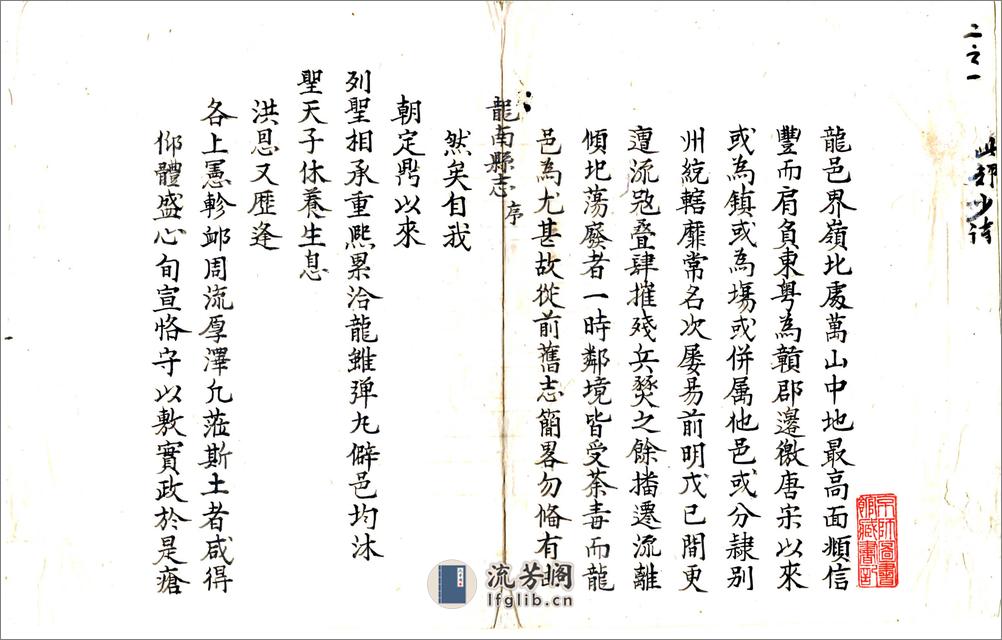 二之一
此部少
京師圖書館藏書記
龍邑界嶺北處萬山中地最高面頫信
豐而肩負東粵為贛郡邊徼唐宋以來
或為鎮或為塲或併属他邑或分隷別
州統轄靡常名次屡易前明戊已間更
遭流冦叠肆摧殘兵燹之餘播遷流離
傾圮蕩廢者一時鄰境皆受荼毒而龍
邑為尤甚故從前舊志簡畧勿俻有
龍南縣志 序
然矣自我
朝定鼎以來
列聖相承重熙累洽龍雖彈丸僻邑均沐
聖天子休養生息
洪恩又歷逢
各上憲軫䘏周流厚澤凢蒞斯土者咸得
仰體盛心旬宣恪守以敷實政於是瘡
流芳閣
lfglib.cn